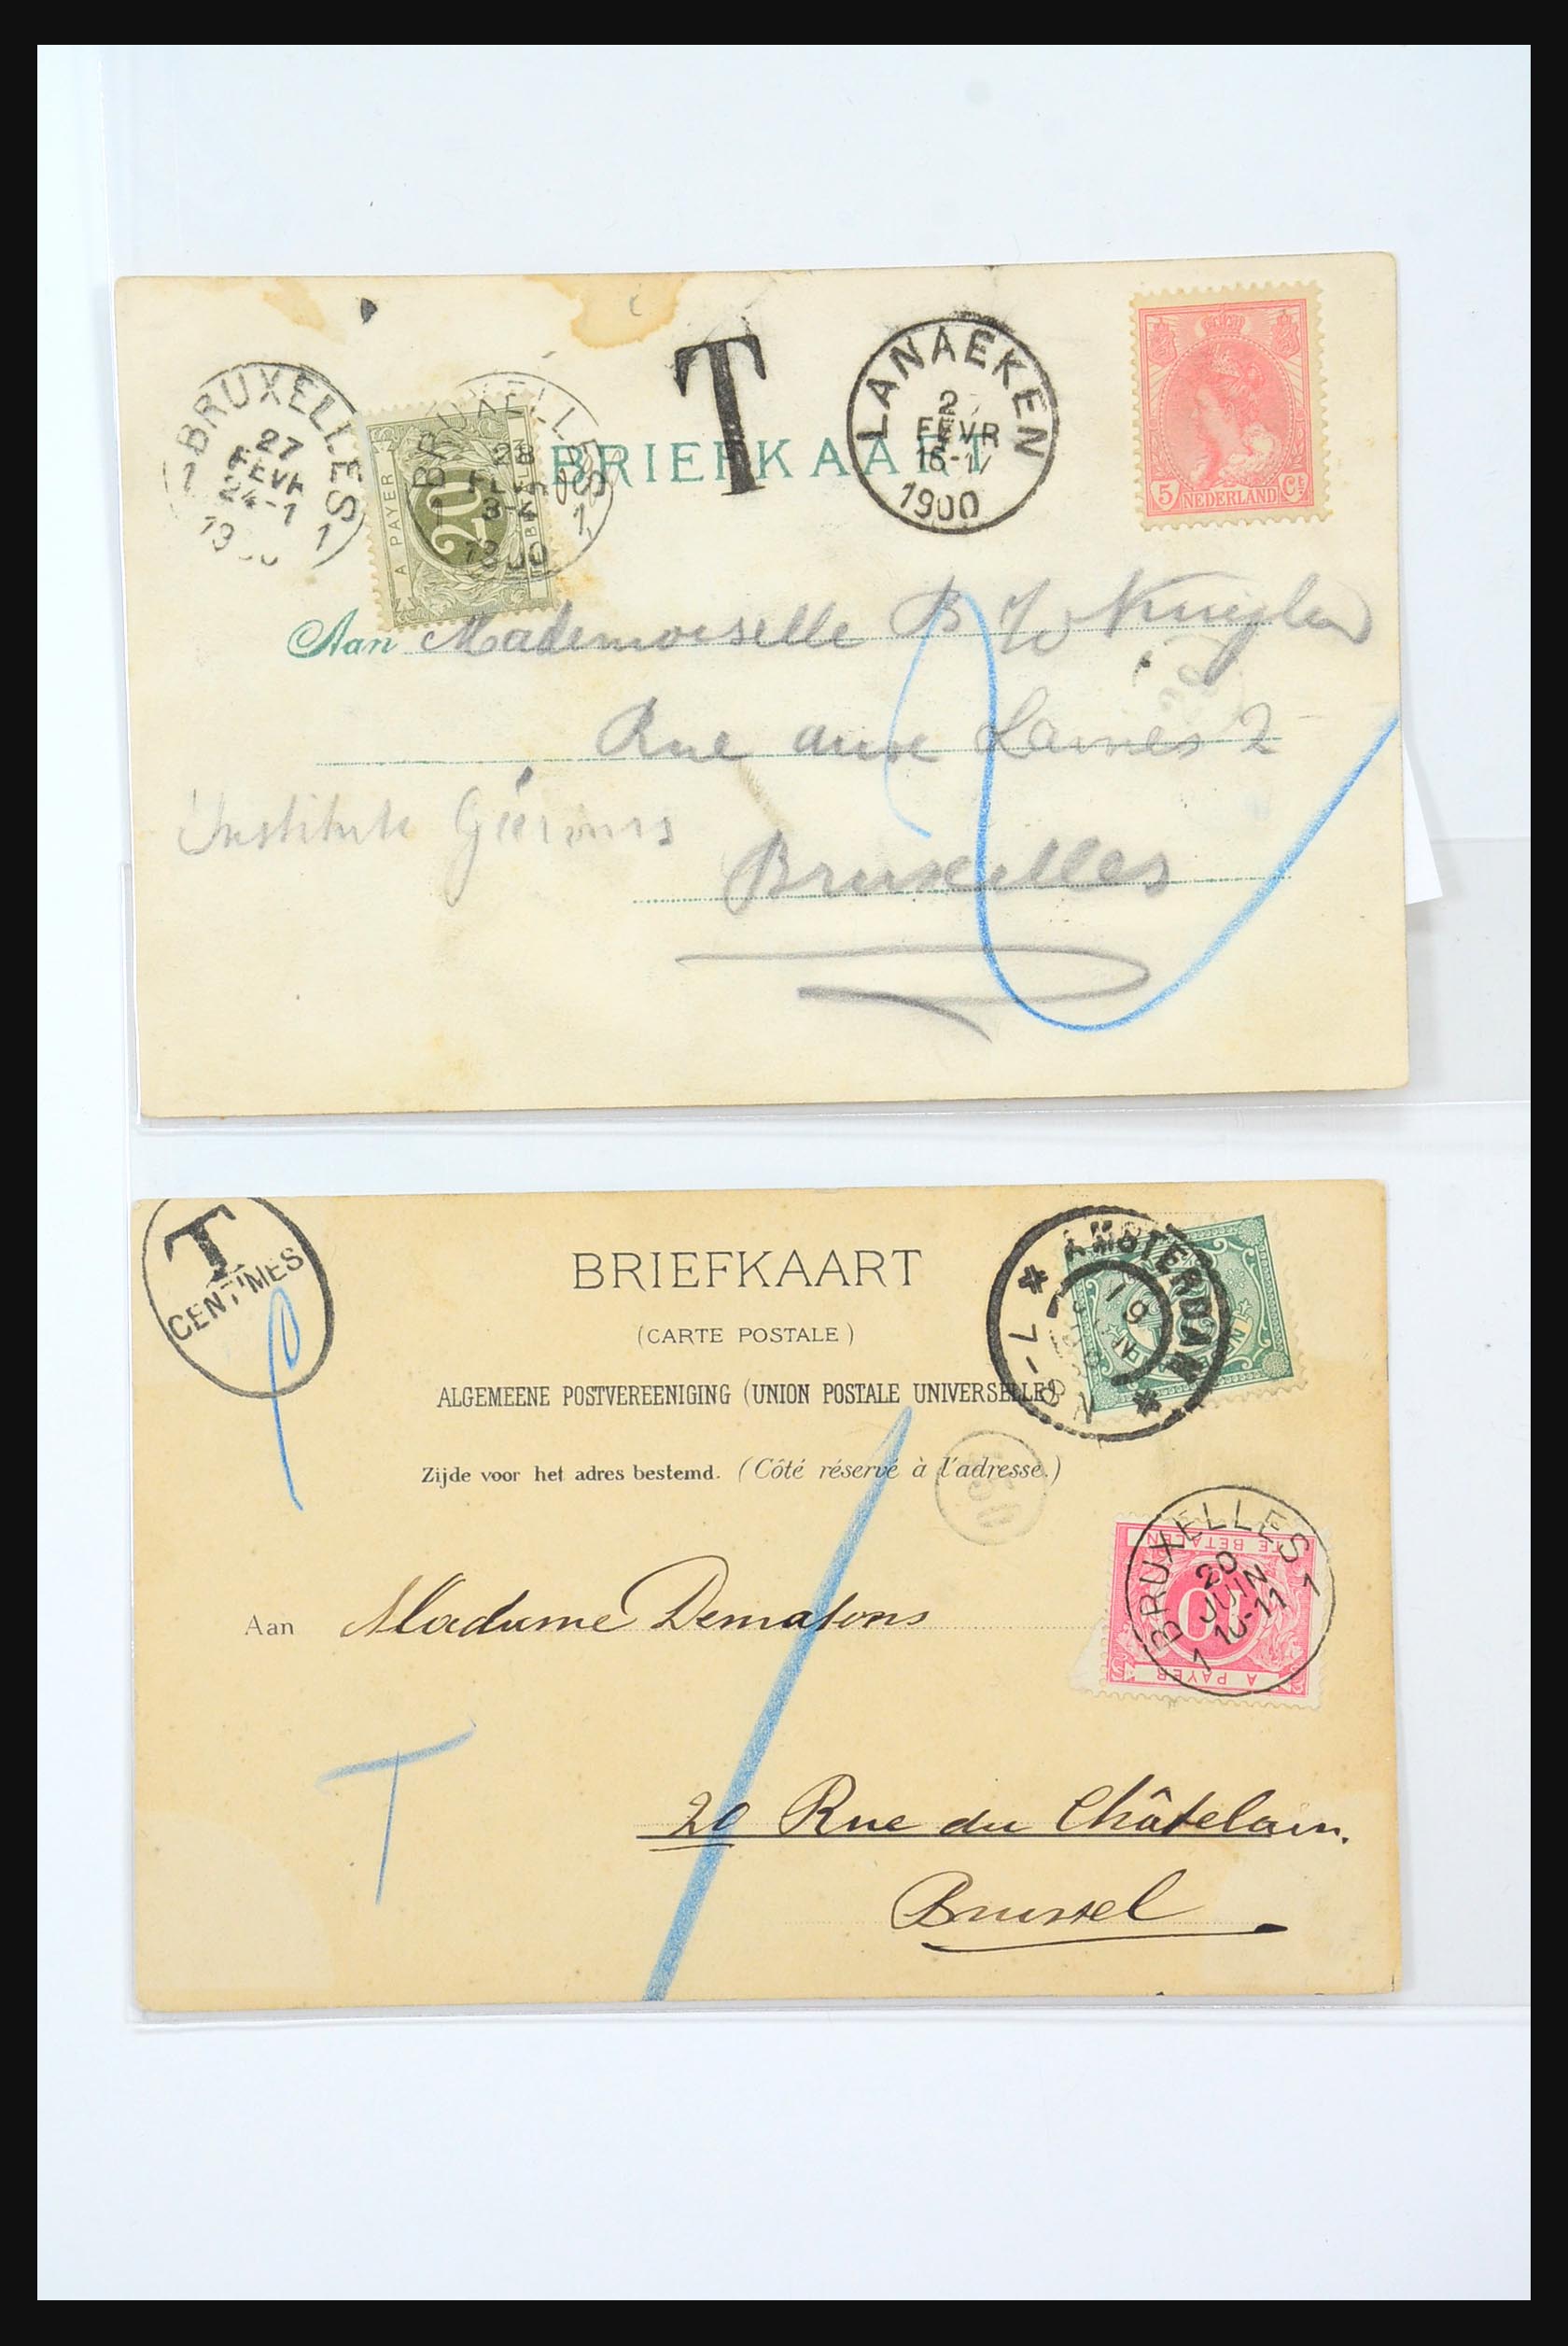 T
LANAEKEN
2
FEVR
1900
5 NEDERLAND Ct
BRUXELLES
27
FEVR
24-1
1 1
BRUXELLES
28
8-
1900
1
A PAYER
20
BRIEFKAART
Aan Mademoiselle B
Rue aux Laines 2
Institute
Bruxelles
T
CENTIMES
BRIEFKAART
(CARTE POSTALE)
ALGEMEENE POSTVEREENIGING (UNION POSTALE UNIVERSELLE)
Zijde voor het adres bestemd. (Côté réservé à l'adresse.)
AMSTERDAM
19
7-8 N
50
BRUXELLES
20
JUIN
10-11
1 1
TE BETALEN
10
A PAYER
Aan Madame Dematons
T
20 Rue du Châtelain.
Brussel